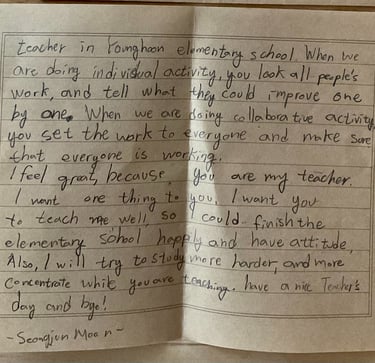 teacher in Younghoon elementary school. When we
are doing individual activity, you look all people's
work, and tell what they could improve one
by one. When we are doing collaborative activity,
you set the work to everyone and make sure
that everyone is working.
I feel great, because you are my teacher.
I want one thing to you. I want you
to teach me well, so I could finish the
elementary school happily and have attitude,
Also, I will try to study more harder, and more
concentrate while you are teaching. have a nice Teacher's
day and bye!
-Seongjun Moon-